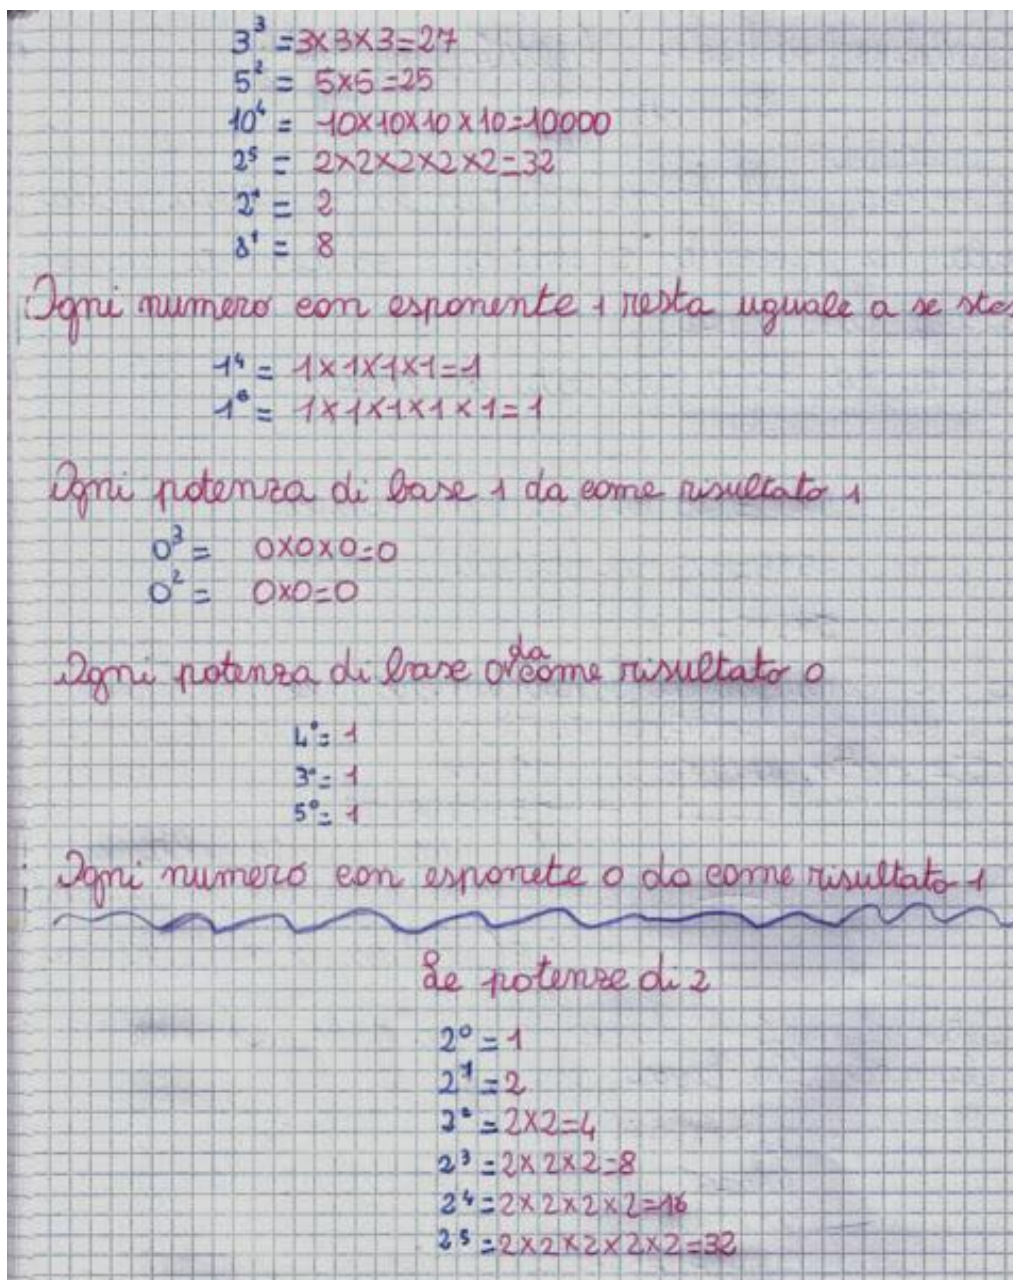 3³ = 3×3×3=27
5² = 5×5=25
10⁴ = 10×10×10×10=10000
2⁵ = 2×2×2×2×2=32
2¹ = 2
8¹ = 8
Ogni numero con esponente 1 resta uguale a se stes
1⁴ = 1×1×1×1=1
1⁶ = 1×1×1×1×1=1
Ogni potenza di base 1 da come risultato 1
0³ = 0×0×0=0
0² = 0×0=0
Ogni potenza di base 0 da come risultato 0
4⁰= 1
3⁰= 1
5⁰= 1
Ogni numero con esponete 0 da come risultato 1
Le potenze di 2
2⁰ = 1
2¹ = 2
2² = 2×2=4
2³ = 2×2×2=8
2⁴ = 2×2×2×2=16
2⁵ = 2×2×2×2×2=32